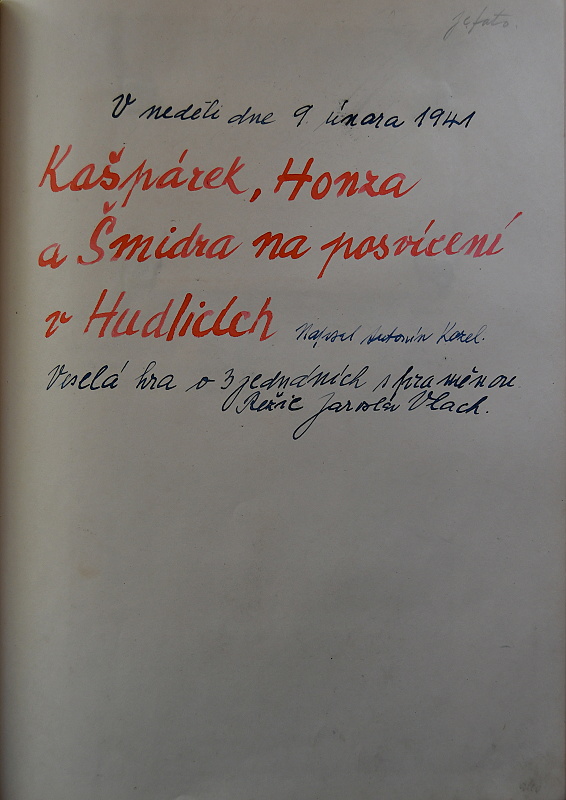 je foto.
V neděli dne 9 února 1941
Kašpárek, Honza
a Šmidra na posvícení
v Hudlicích Napsal Antonín Karel.
Veselá hra o 3 jednáních s proměnou
Režie Jaroslav Vlach.